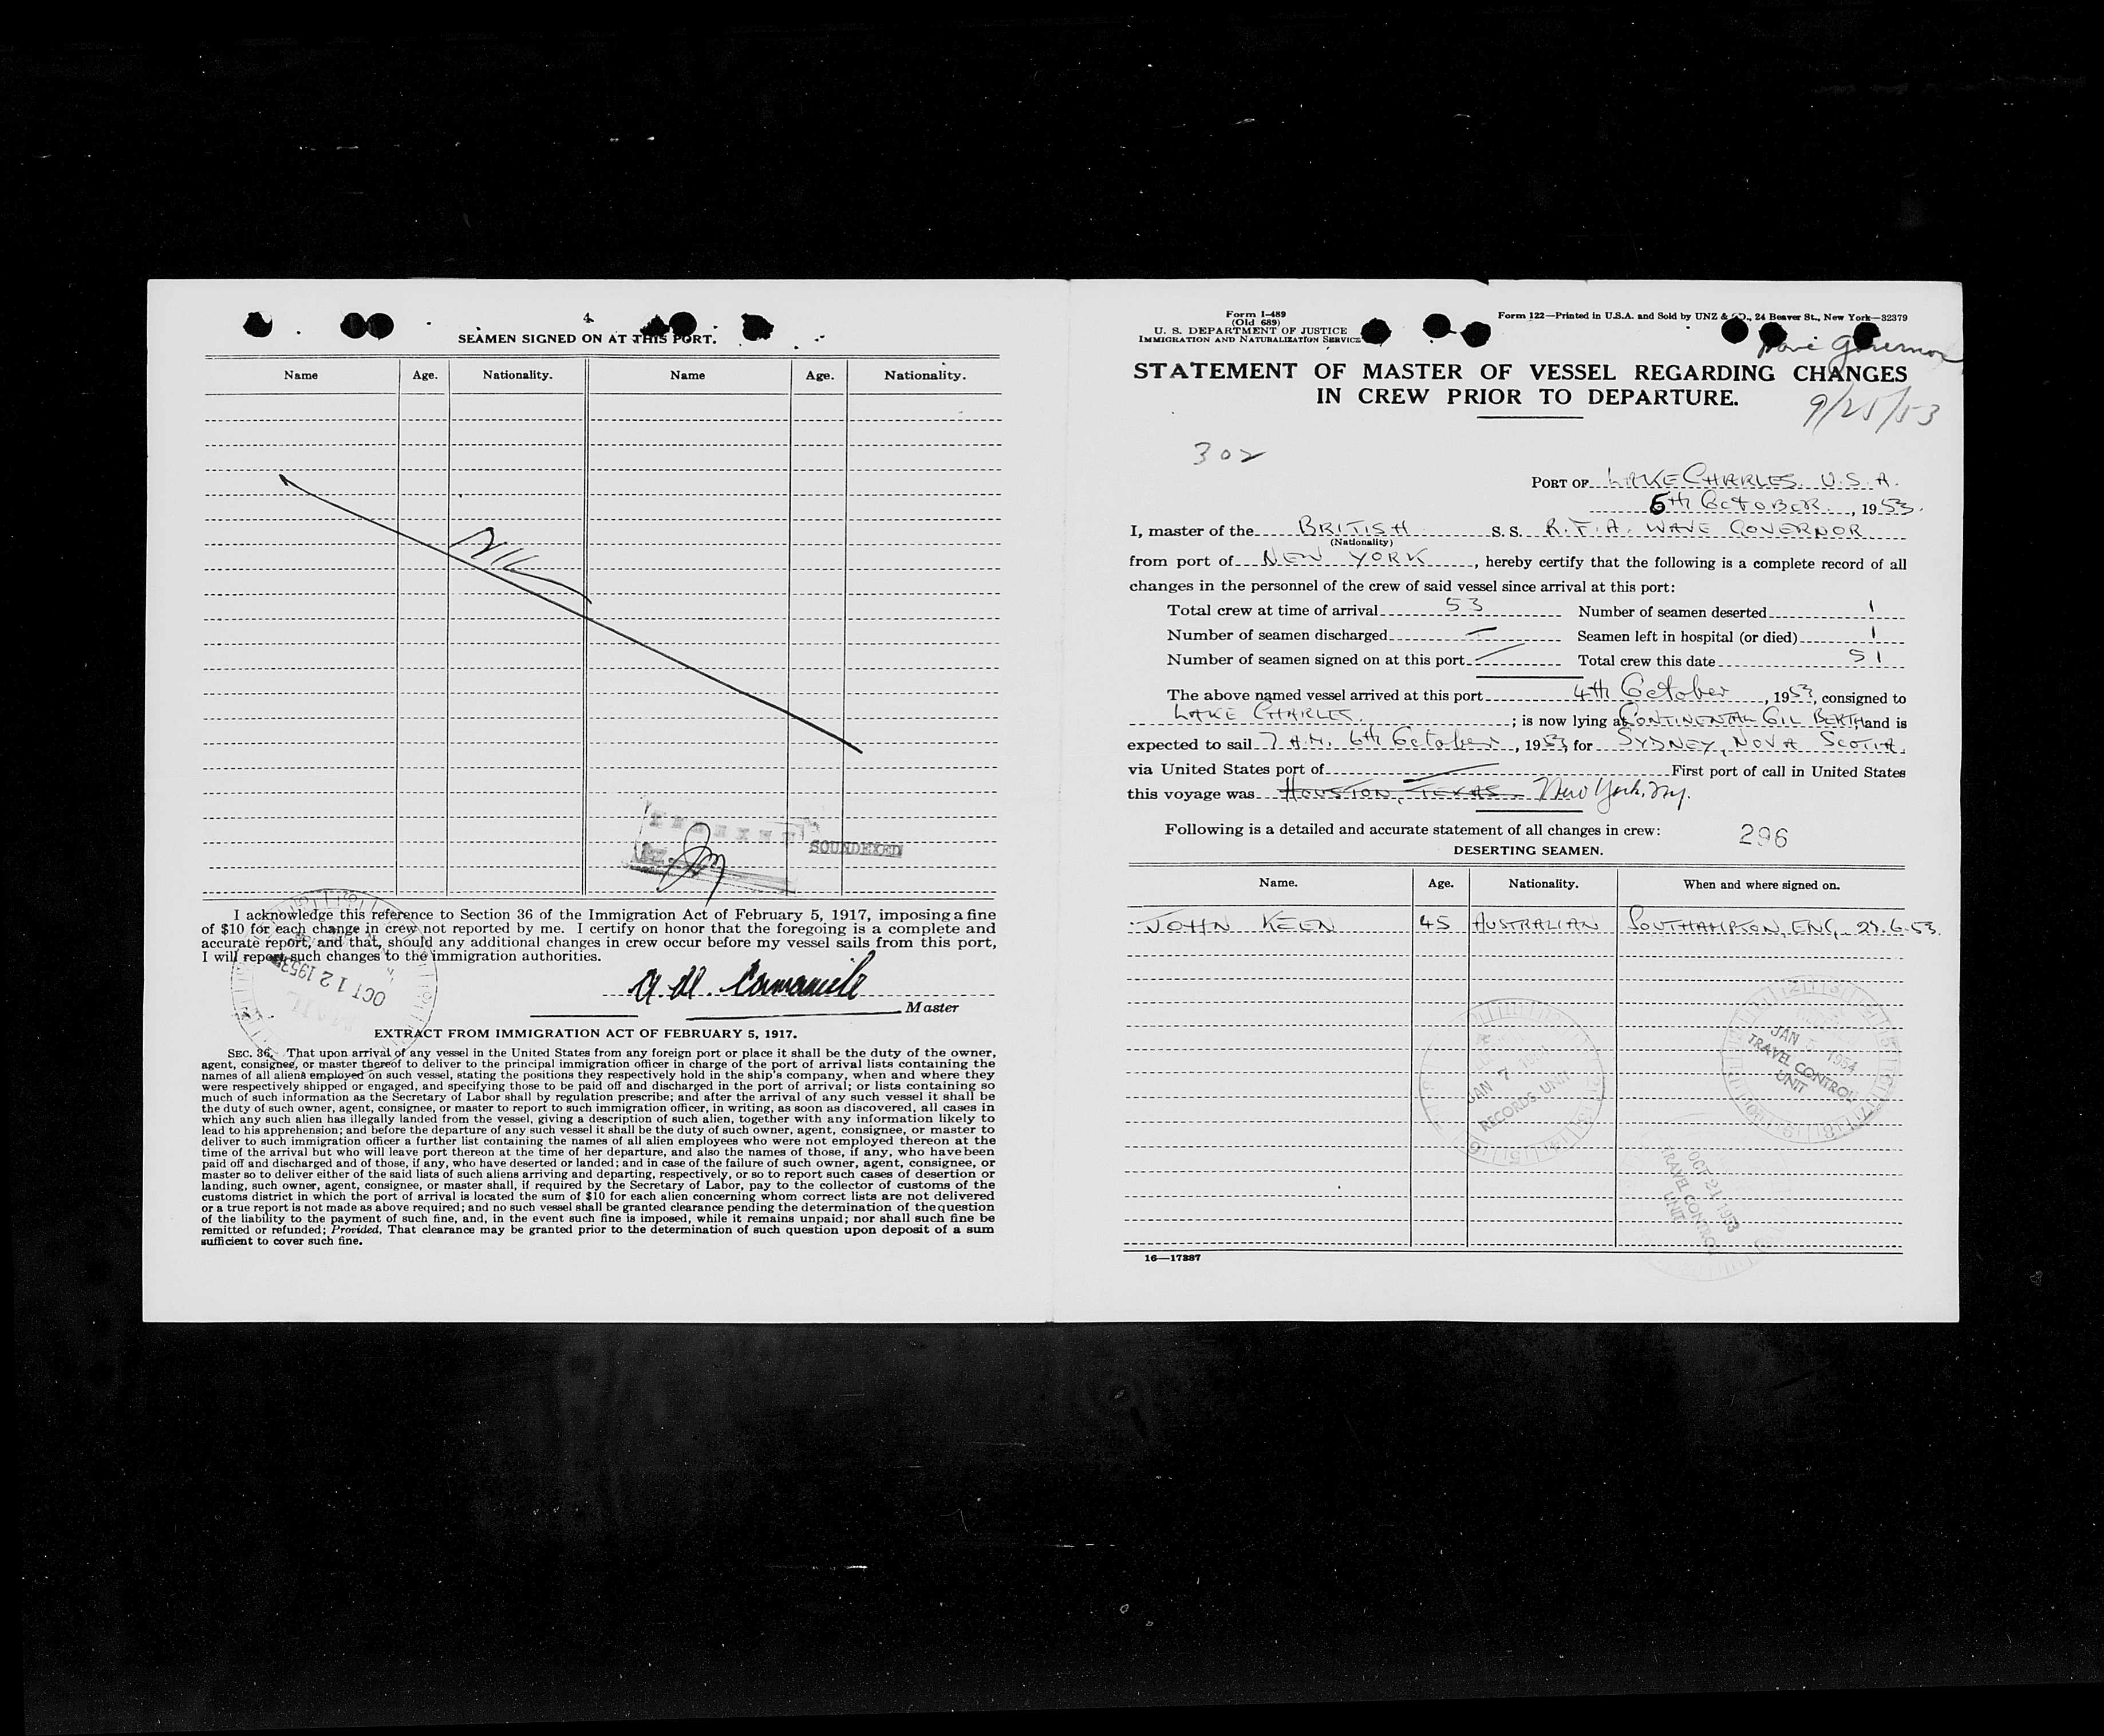 4
SEAMEN SIGNED ON AT THIS PORT.
Name Age. Nationality. Name Age. Nationality.
NIL
SOUNDEXED
I acknowledge this reference to Section 36 of the Immigration Act of February 5, 1917, imposing a fine
of $10 for each change in crew not reported by me. I certify on honor that the foregoing is a complete and
accurate report, and that, should any additional changes in crew occur before my vessel sails from this port,
I will report such changes to the immigration authorities.
OCT 12 1953
Master
EXTRACT FROM IMMIGRATION ACT OF FEBRUARY 5, 1917.
SEC. 36. That upon arrival of any vessel in the United States from any foreign port or place it shall be the duty of the owner,
agent, consignee, or master thereof to deliver to the principal immigration officer in charge of the port of arrival lists containing the
names of all aliens employed on such vessel, stating the positions they respectively hold in the ship's company, when and where they
were respectively shipped or engaged, and specifying those to be paid off and discharged in the port of arrival; or lists containing so
much of such information as the Secretary of Labor shall by regulation prescribe; and after the arrival of any such vessel it shall be
the duty of such owner, agent, consignee, or master to report to such immigration officer, in writing, as soon as discovered, all cases in
which any such alien has illegally landed from the vessel, giving a description of such alien, together with any information likely to
lead to his apprehension; and before the departure of any such vessel it shall be the duty of such owner, agent, consignee, or master to
deliver to such immigration officer a further list containing the names of all alien employees who were not employed thereon at the
time of the arrival but who will leave port thereon at the time of her departure, and also the names of those, if any, who have been
paid off and discharged and of those, if any, who have deserted or landed; and in case of the failure of such owner, agent, consignee, or
master so to deliver either of the said lists of such aliens arriving and departing, respectively, or so to report such cases of desertion or
landing, such owner, agent, consignee, or master shall, if required by the Secretary of Labor, pay to the collector of customs of the
customs district in which the port of arrival is located the sum of $10 for each alien concerning whom correct lists are not delivered
or a true report is not made as above required; and no such vessel shall be granted clearance pending the determination of the question
of the liability to the payment of such fine, and, in the event such fine is imposed, while it remains unpaid; nor shall such fine be
remitted or refunded; Provided, That clearance may be granted prior to the determination of such question upon deposit of a sum
sufficient to cover such fine.
Form I-489
(Old 689)
U. S. DEPARTMENT OF JUSTICE
IMMIGRATION AND NATURALIZATION SERVICE
Form 122—Printed in U.S.A. and Sold by UNZ & CO., 24 Beaver St., New York—32379
Wave Governor
STATEMENT OF MASTER OF VESSEL REGARDING CHANGES
IN CREW PRIOR TO DEPARTURE.
9/25/53
302
PORT OF LAKE CHARLES. U.S.A.
6th OCTOBER, 1953.
I, master of the BRITISH S. S. R.F.A. WAVE GOVERNOR
(Nationality)
from port of NEW YORK, hereby certify that the following is a complete record of all
changes in the personnel of the crew of said vessel since arrival at this port:
Total crew at time of arrival 53 Number of seamen deserted 1
Number of seamen discharged — Seamen left in hospital (or died) 1
Number of seamen signed on at this port — Total crew this date 51
The above named vessel arrived at this port 4th October, 1953, consigned to
LAKE CHARLES. ; is now lying at CONTINENTAL OIL BERTH and is
expected to sail 7 A.M. 6th October, 1953, for SYDNEY, NOVA SCOTIA.
via United States port of — First port of call in United States
this voyage was HOUSTON, TEXAS. New York, NY.
Following is a detailed and accurate statement of all changes in crew: 296
DESERTING SEAMEN.
Name. Age. Nationality. When and where signed on.
JOHN KEEN 45 AUSTRALIAN SOUTHAMPTON, ENG, 29.6.53.
JAN 7 1954
RECORDS UNIT
JAN 1954
TRAVEL CONTROL
UNIT
OCT 21 1953
TRAVEL CONTROL
UNIT
16—17387